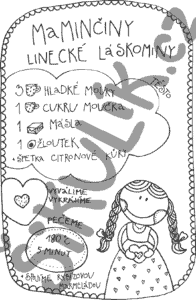 MAMINČINY
LINECKÉ LÁSKOMINY
TĚSTO
3 HLADKÉ MOUKY
1 CUKRU MOUČKA
1 MÁSLA
1 ŽLOUTEK
• ŠPETKA CITRONOVÉ KŮRY
VYVÁLÍME
VYKRÁJÍME
PEČEME
180°C
5 MINUT
• SPOJÍME RYBÍZOVOU
MARMELÁDOU